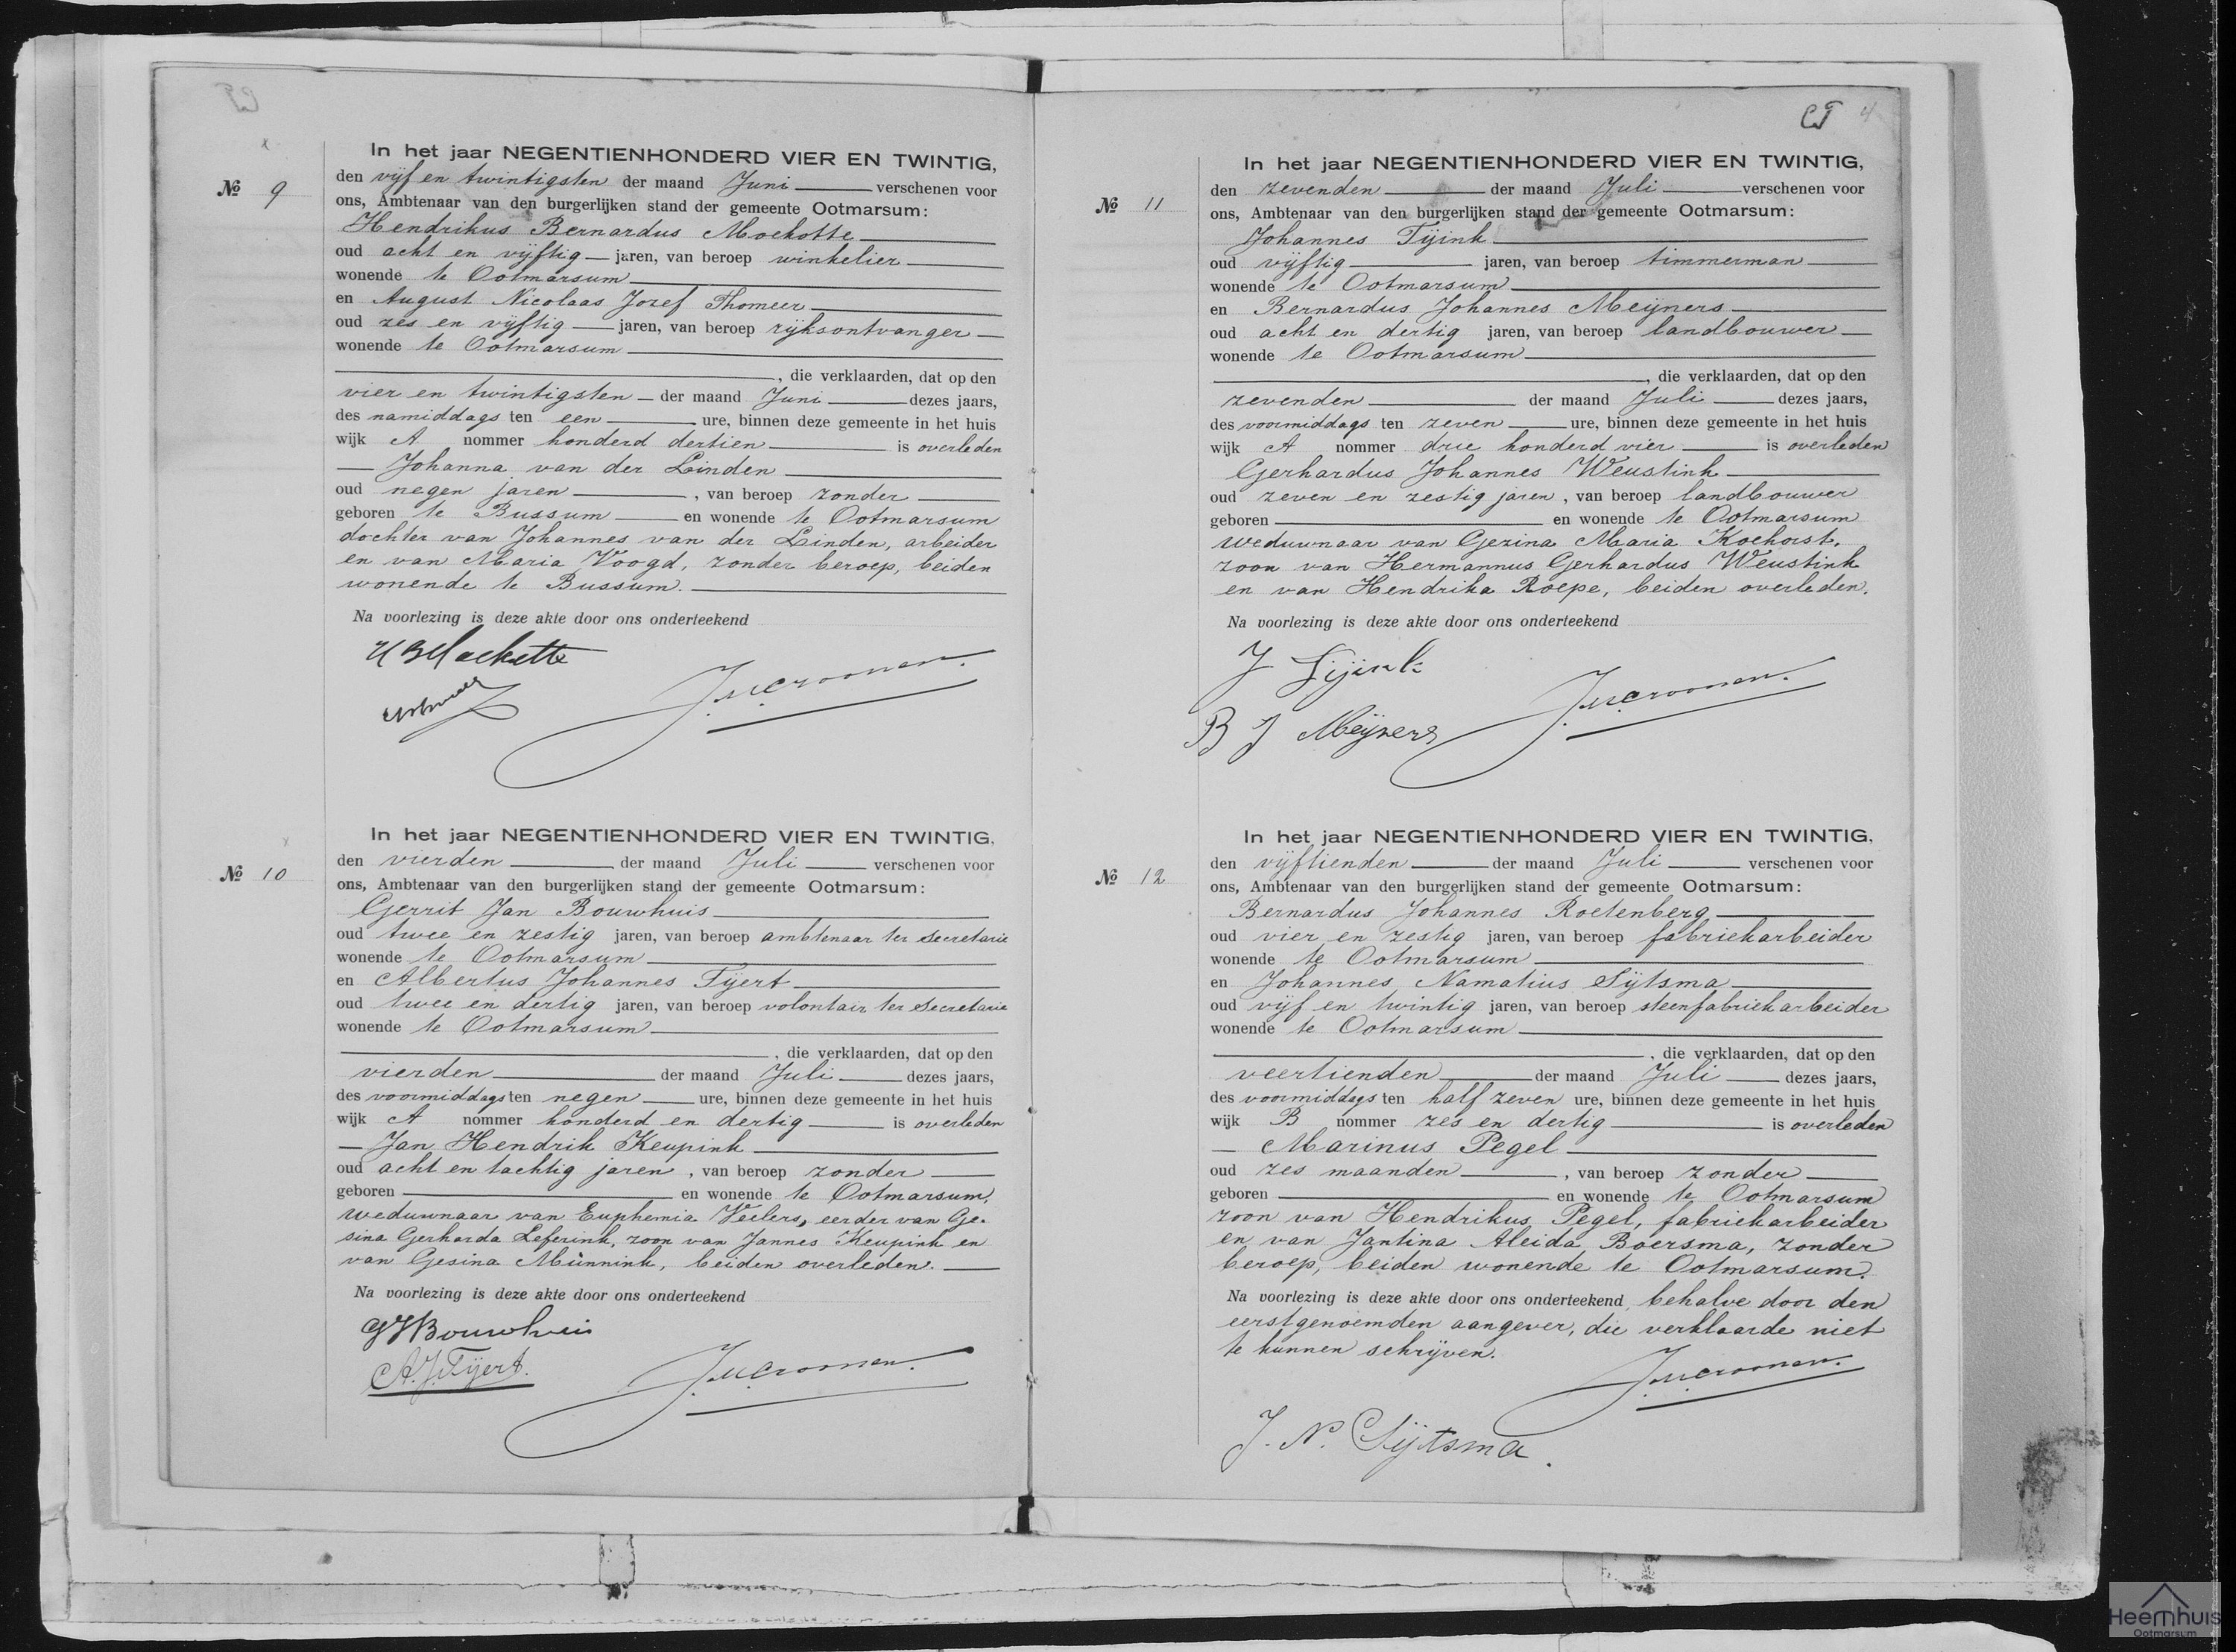 № 9
In het jaar NEGENTIENHONDERD VIER EN TWINTIG,
den vijf en twintigsten der maand Juni verschenen voor
ons, Ambtenaar van den burgerlijken stand der gemeente Ootmarsum:
Hendrikus Bernardus Mockotte
oud acht en vijftig jaren, van beroep winkelier
wonende te Ootmarsum
en August Nicolaas Jozef Thomeer
oud zes en vijftig jaren, van beroep rijksontvanger
wonende te Ootmarsum
, die verklaarden, dat op den
vier en twintigsten der maand Juni dezes jaars,
des namiddags ten een ure, binnen deze gemeente in het huis
wijk A nommer honderd dertien is overleden
Johanna van der Linden
oud negen jaren, van beroep zonder
geboren te Bussum en wonende te Ootmarsum
dochter van Johannes van der Linden, arbeider
en van Maria Voogd, zonder beroep, beiden
wonende te Bussum.
Na voorlezing is deze akte door ons onderteekend
№ 10
In het jaar NEGENTIENHONDERD VIER EN TWINTIG,
den vierden der maand Juli verschenen voor
ons, Ambtenaar van den burgerlijken stand der gemeente Ootmarsum:
Gerrit Jan Bouwhuis
oud twee en zestig jaren, van beroep ambtenaar ter secretarie
wonende te Ootmarsum
en Albertus Johannes Tijert
oud twee en dertig jaren, van beroep volontair ter secretarie
wonende te Ootmarsum
, die verklaarden, dat op den
vierden der maand Juli dezes jaars,
des voormiddags ten negen ure, binnen deze gemeente in het huis
wijk A nommer honderd en dertig is overleden
Jan Hendrik Keupink
oud acht en tachtig jaren, van beroep zonder
geboren en wonende te Ootmarsum,
weduwnaar van Euphemia Veelers, eerder van Ge-
sina Gerharda Leferink, zoon van Jannes Keupink en
van Gesina Münnink, beiden overleden.
Na voorlezing is deze akte door ons onderteekend
GJBouwhuis
A.J.Tijert.
CT 4
№ 11
In het jaar NEGENTIENHONDERD VIER EN TWINTIG,
den zevenden der maand Juli verschenen voor
ons, Ambtenaar van den burgerlijken stand der gemeente Ootmarsum:
Johannes Tijink
oud vijftig jaren, van beroep timmerman
wonende te Ootmarsum
en Bernardus Johannes Meijners
oud acht en dertig jaren, van beroep landbouwer
wonende te Ootmarsum
, die verklaarden, dat op den
zevenden der maand Juli dezes jaars,
des voormiddags ten zeven ure, binnen deze gemeente in het huis
wijk A nommer drie honderd vier is overleden
Gerhardus Johannes Weustink
oud zeven en zestig jaren, van beroep landbouwer
geboren en wonende te Ootmarsum
weduwnaar van Gezina Maria Kochorst,
zoon van Hermannus Gerhardus Weustink
en van Hendrika Roepe, beiden overleden.
Na voorlezing is deze akte door ons onderteekend
J Tijink
B J Meijners
№ 12
In het jaar NEGENTIENHONDERD VIER EN TWINTIG,
den vijftienden der maand Juli verschenen voor
ons, Ambtenaar van den burgerlijken stand der gemeente Ootmarsum:
Bernardus Johannes Roetenberg
oud vier en zestig jaren, van beroep fabriekarbeider
wonende te Ootmarsum
en Johannes Namatius Sijtsma
oud vijf en twintig jaren, van beroep steenfabriekarbeider
wonende te Ootmarsum
, die verklaarden, dat op den
veertienden der maand Juli dezes jaars,
des voormiddags ten half zeven ure, binnen deze gemeente in het huis
wijk B nommer zes en dertig is overleden
Marinus Pegel
oud zes maanden, van beroep zonder
geboren en wonende te Ootmarsum
zoon van Hendrikus Pegel, fabriekarbeider
en van Jantina Aleida Boersma, zonder
beroep, beiden wonende te Ootmarsum.
Na voorlezing is deze akte door ons onderteekend, behalve door den
eerstgenoemden aangever, die verklaarde niet
te kunnen schrijven.
J. N. Sijtsma.
Heemhuis
Ootmarsum